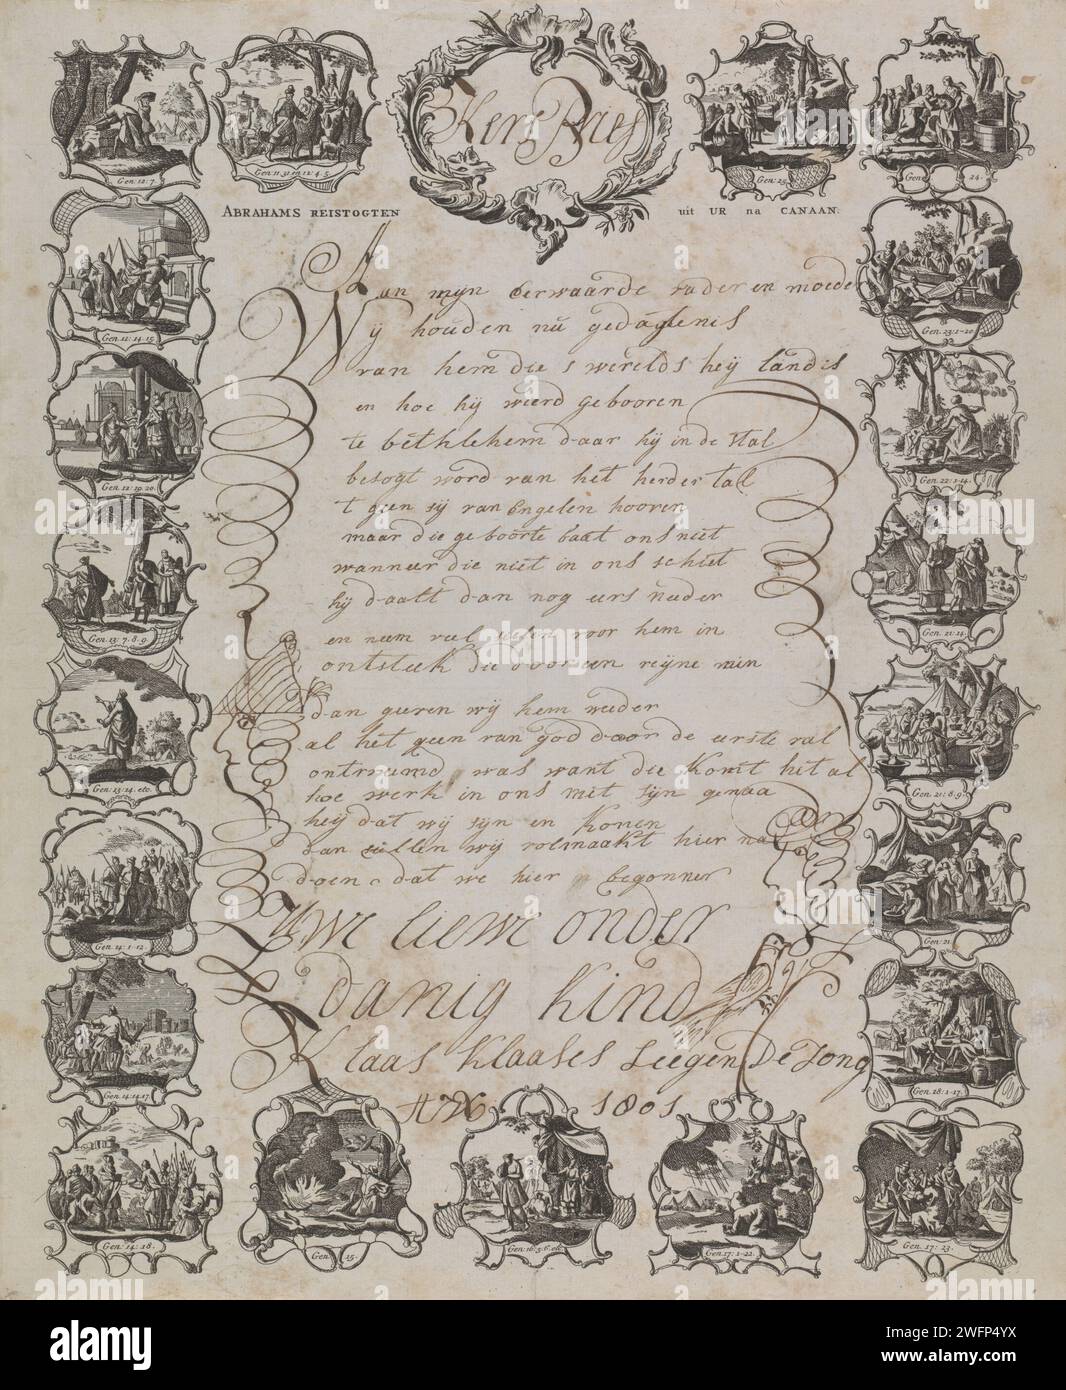 Kers Brief
ABRAHAMS REISTOGTEN uit UR na CANAAN.
Aan mijn eerwaarde vader en moeder
Wij houden nu gedagtenis
van hem die s werelds heij land is
en hoe hij wierd gebooren
te bethlehem daar hij in de stal
besogt word van het herder tal
t geen sij van Engelen hooren
maar die geboorte baat ons niet
wanneer die niet in ons schiet
hij daalt dan nog eers nader
en neem voor hem in
ontsteek die door een reijne min
dan gieren wij hem weder
al het geen van god door de eerste val
ontvremd was want die komt hit al
hoe werk in ons met sijn genaa
heij dat wij sijn en konen
dan sullen wij volmaakt hier na
doen dat we hier begonnen
Uwe liewe onder
danig kind
Klaas Klaases Leegen De Jong
1801
Gen: 12:7.
Gen: 11.31 en 12:4.5.
Gen: 25.
Gen: 24.
Gen: 12:14-15.
Gen. 23:1-20.
Gen: 12:19.20.
Gen: 22:1-14.
Gen: 13:7.8.9.
Gen: 21:14.
Gen: 13:14. etc.
Gen: 21:8.9.
Gen: 14:1-12.
Gen: 21.
Gen: 14:14.17.
Gen: 18:1-17.
Gen: 14:18.
Gen: 15.
Gen: 16:5.6. etc.
Gen: 17:1-22.
Gen: 17:23.
alamy
Image ID: 2WFP4YX
www.alamy.com